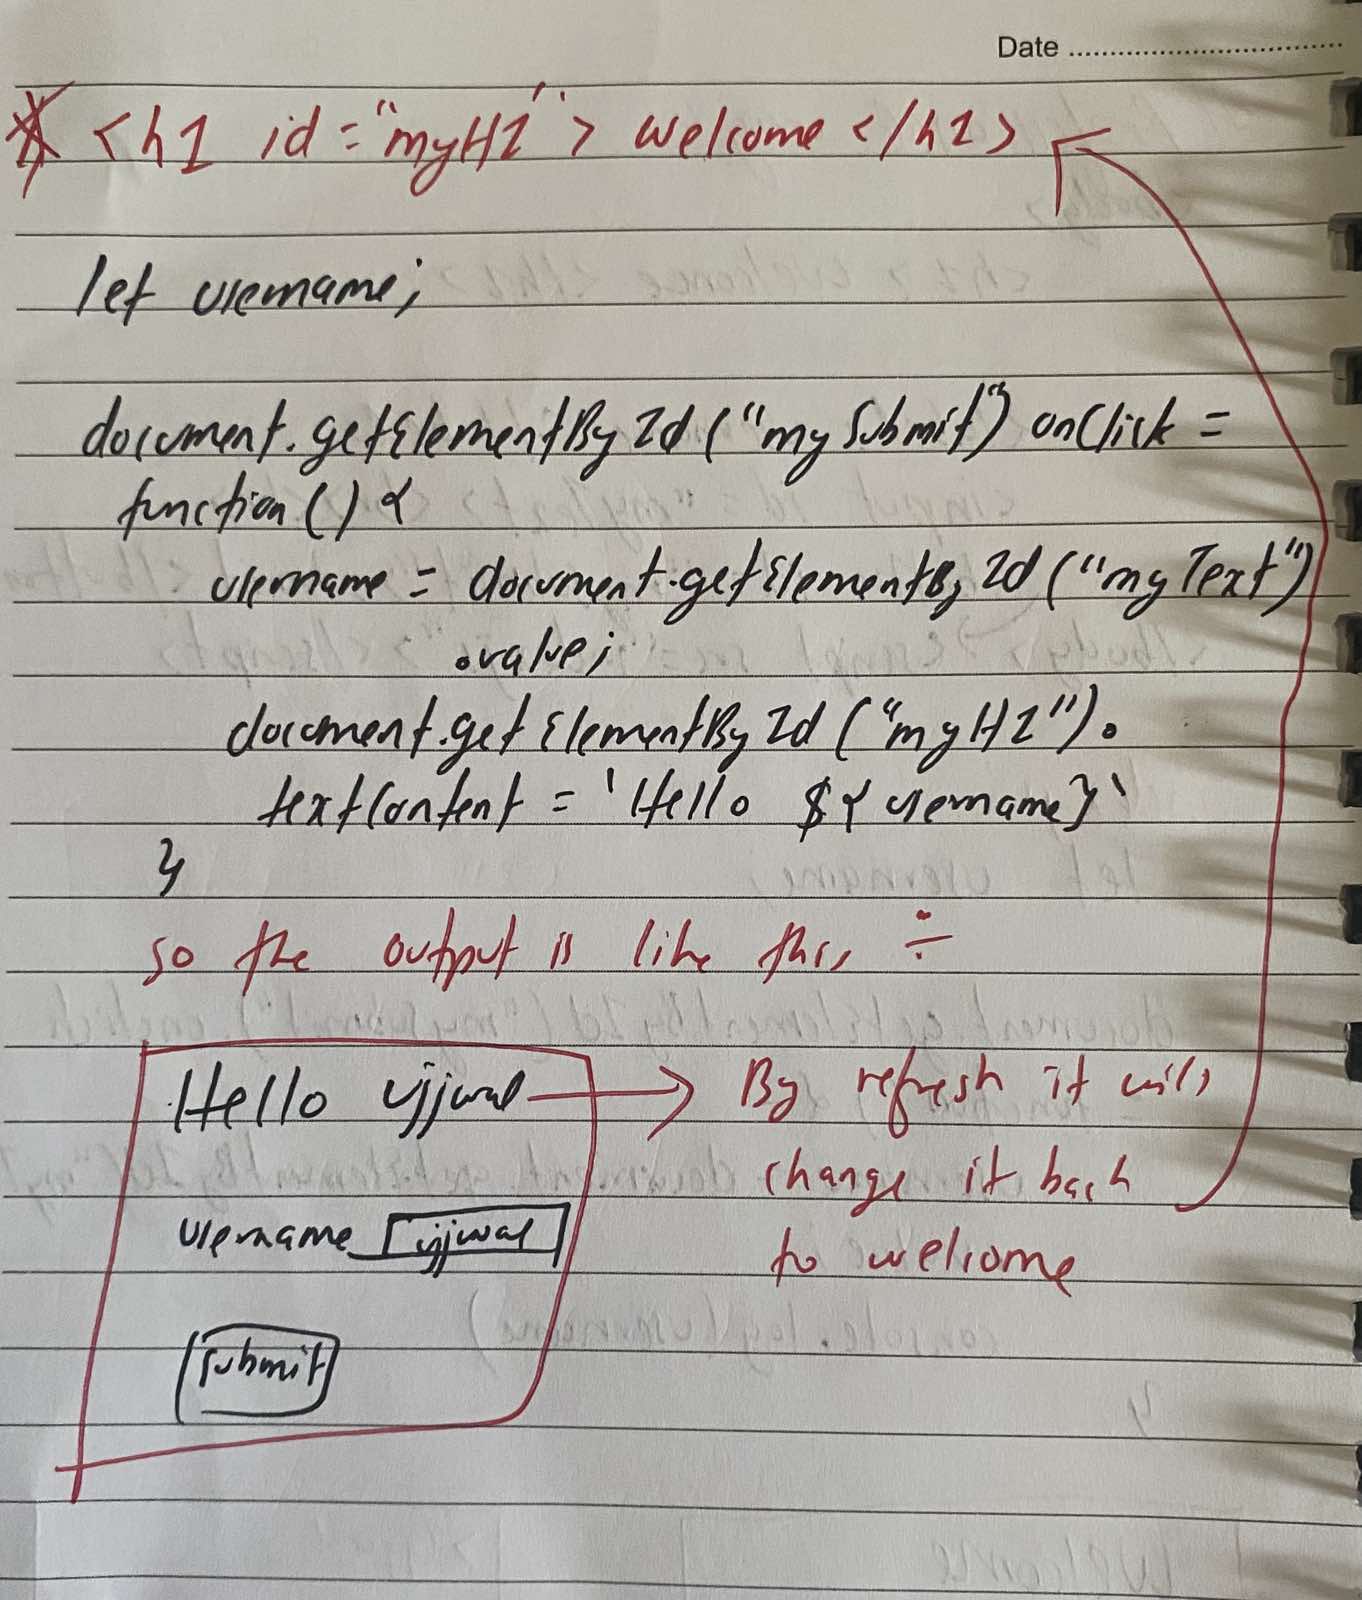 Date
<h1 id="myH1"> welcome </h1>
let username;
document.getElementById("mySubmit") onClick =
function() {
username = document.getElementById("myText")
.value;
document.getElementById("myH1").
textContent = `Hello ${username}`
}
so the output is like this ÷
Hello ujjwal → By refresh it will
change it back
username ujjwal
to welcome
submit